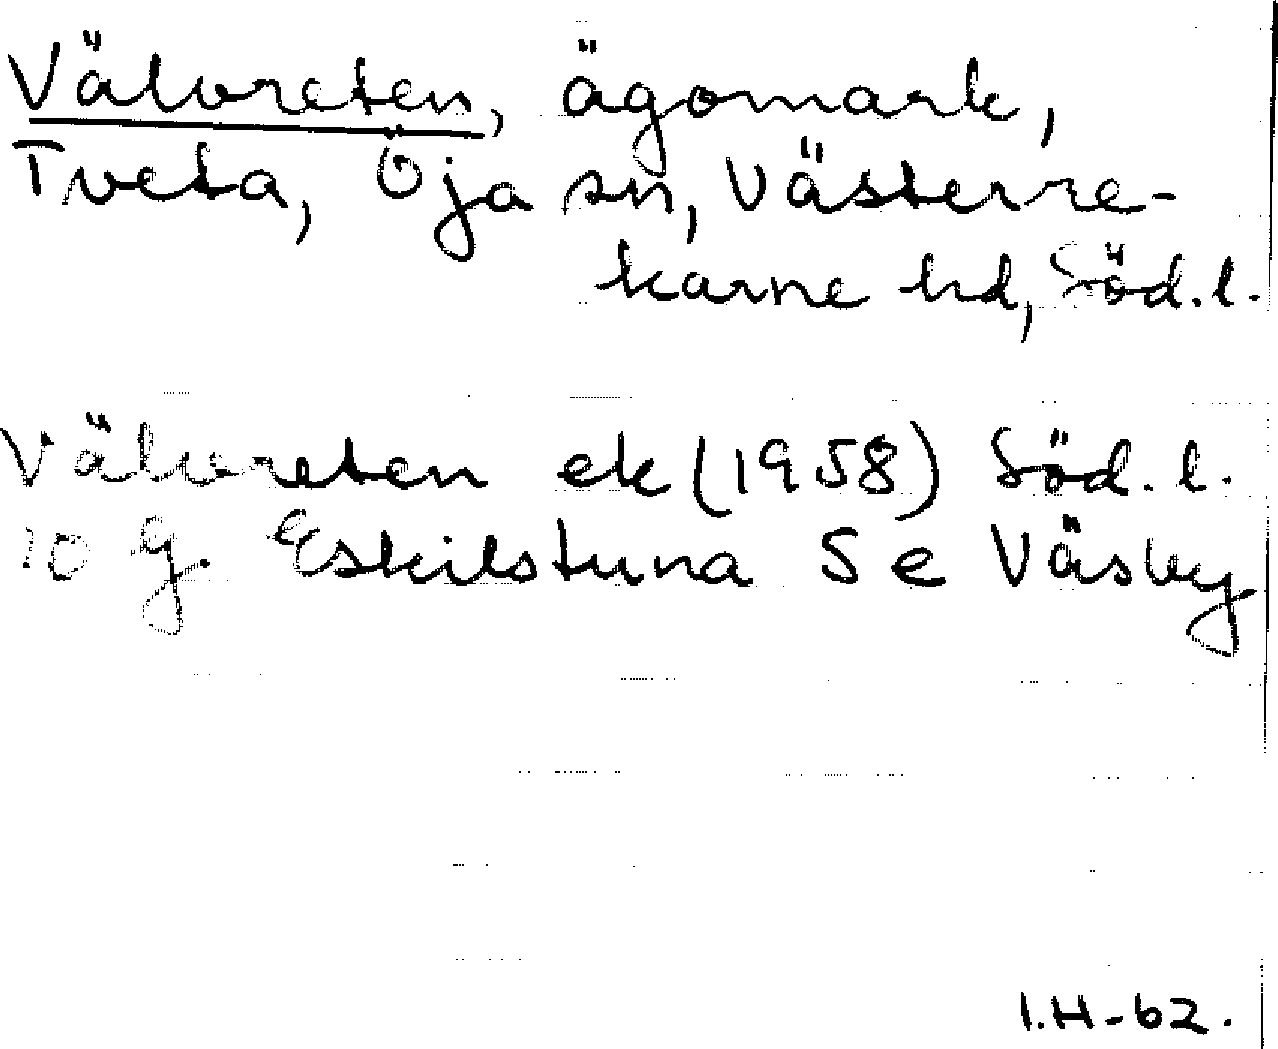 Välvreten, ägomark,
Tveta, Öja sn, Västerre-
karne hd, Söd. l.
Välvreten ek (1958) Söd. l.
10 g. Eskilstuna S e Väsby
I.H-62.